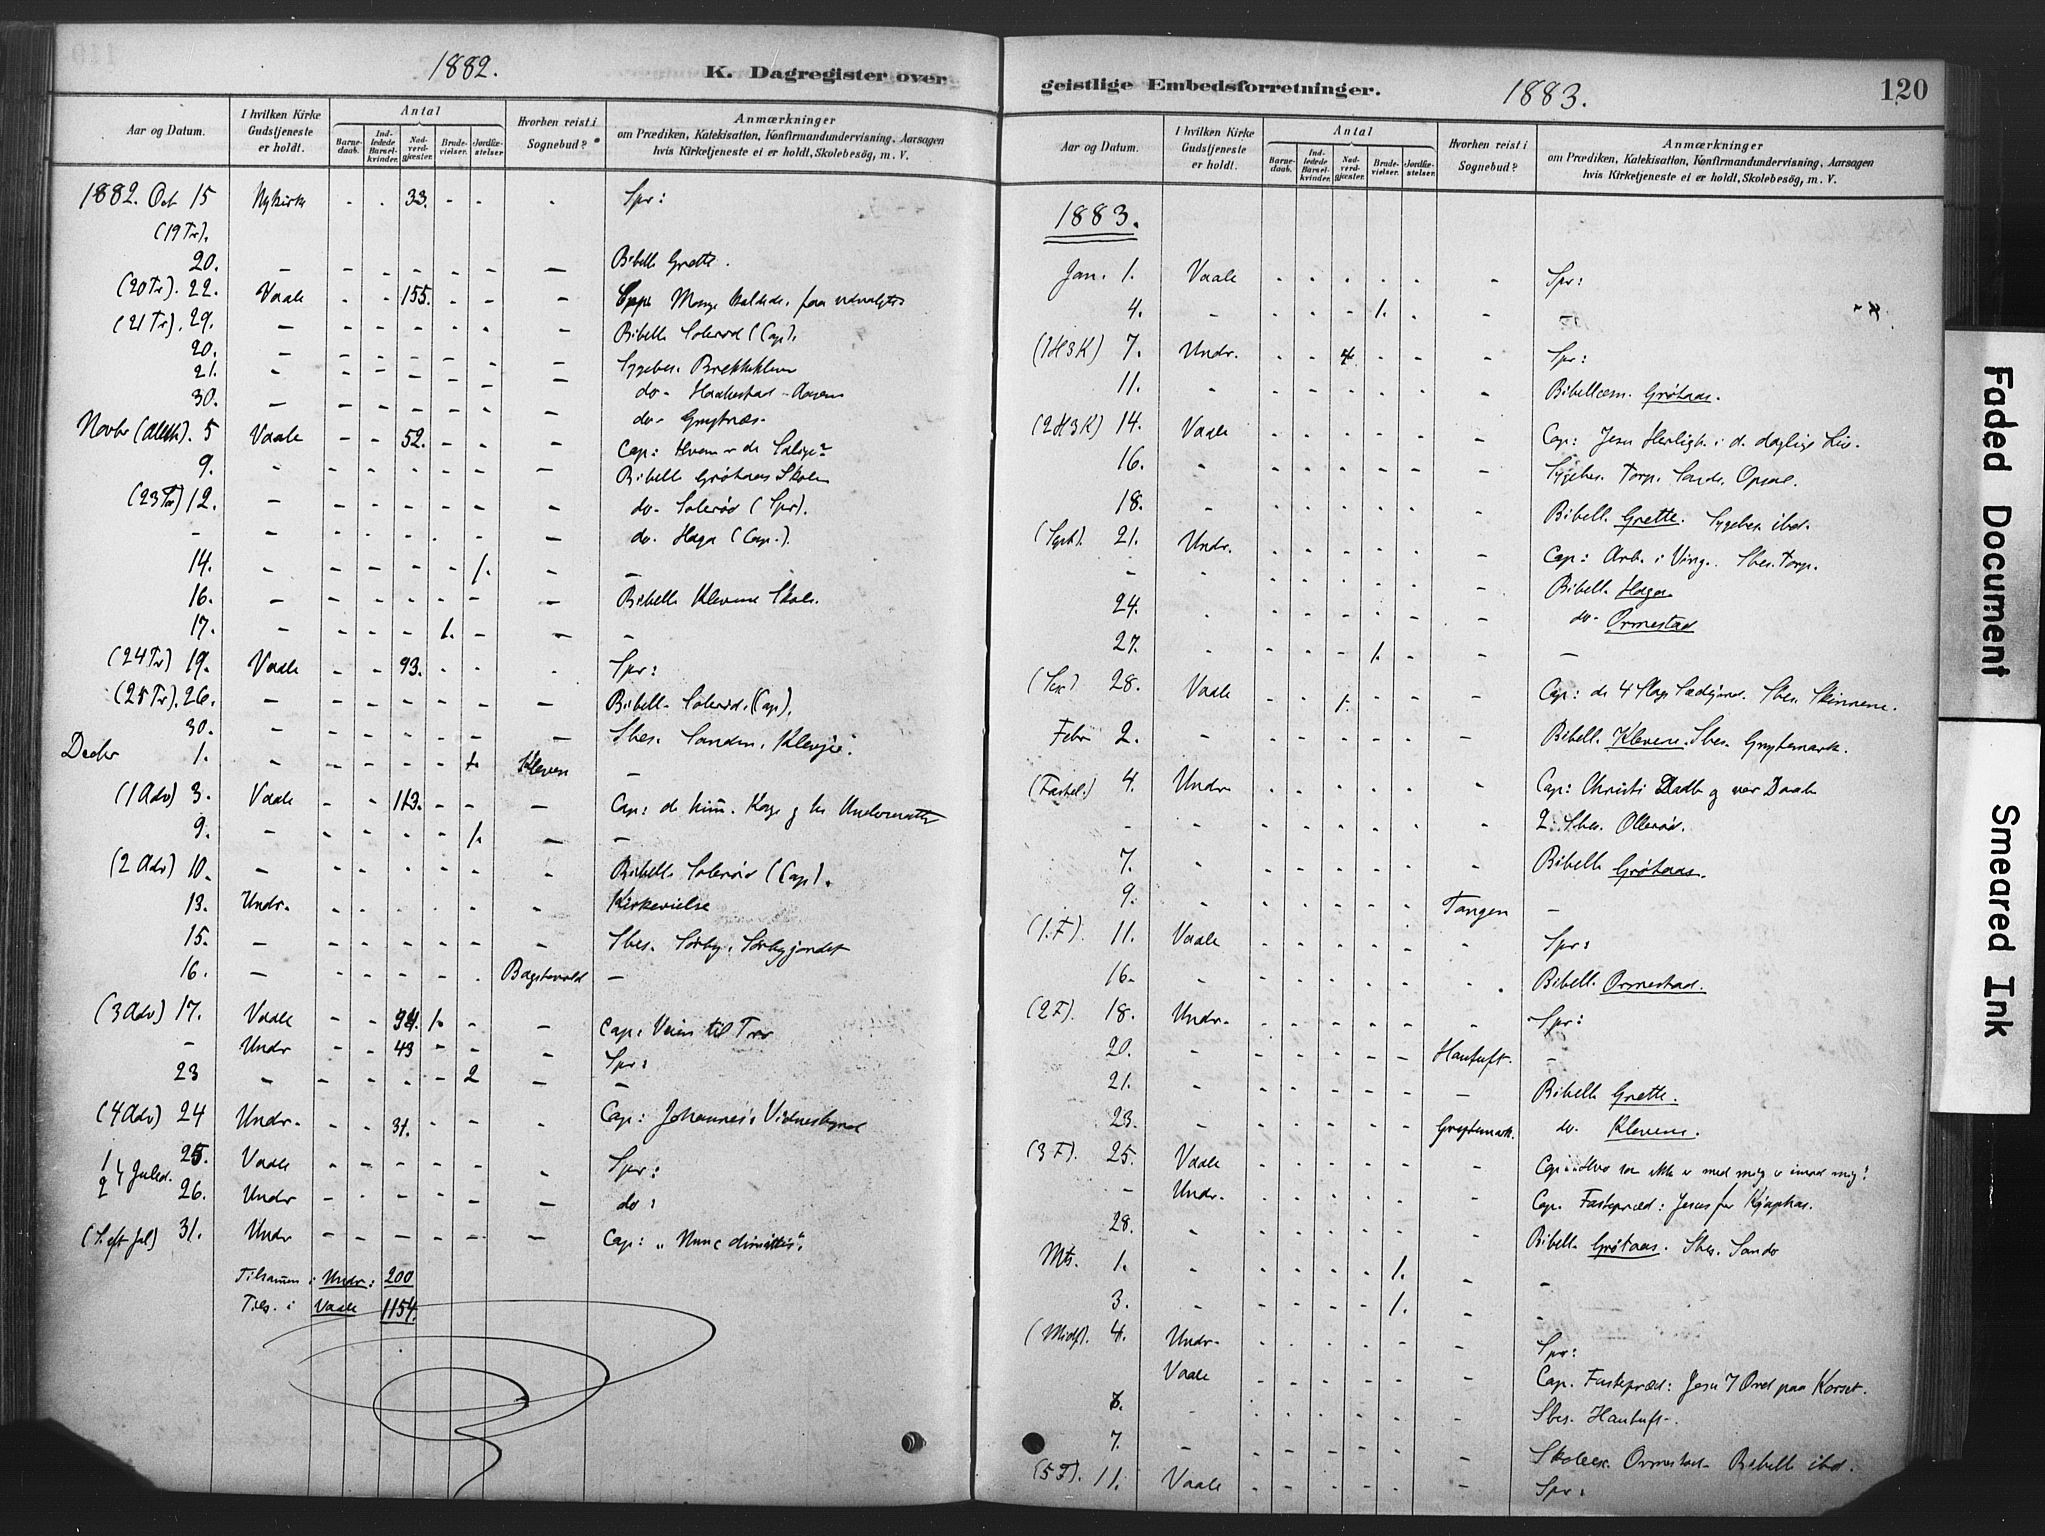 1882.
K. Dagregister over
Aar og Datum.
I hvilken Kirke Gudstjeneste er holdt.
Antal
Barnedaab.
Indledede Barselkvinder.
Nadverdgjæster.
Brudevielser.
Jordfæstelser
Hvorhen reist i Sognebud?
Anmærkninger
om Prædiken, Katekisation, Konfirmandundervisning, Aarsagen
hvis Kirketjeneste ei er holdt, Skolebesög, m. V.
1882. Oct 15 Nykirke - - 33. - - - Spr:
(19 Tr).
20. - - - - - - - Bibell. Grette.
(20 Tr). 22. Vaale - - 155. - - -
(21 Tr). 29. - - - - - - - Bibell. Solerød (Cap).
20. - - - - - - - Sygebes.
21. - - - - - - - do-
30. - - - - - - - do-
Novbr 5 Vaale - - 52. - - - Cap:
9. - - - - - - - Bibell. Grøtaas Skole
(23 Tr) 12. - - - - - - - do- Solerød (Spr).
- - - - - - - - do- Haga (Cap.).
14. - - - - - 1. - -
16. - - - - - - - Bibell. Klevene Skole.
17. - - - - 1. - - -
(24 Tr) 19. Vaale - - 93. - - - Spr:
(25 Tr). 26. - - - - - - - Bibell. Solerød. (Cap).
30. - - - - - - - Sbes. Sanden.
Decbr 1. - - - - - 1. Kleven -
(1 Adv) 3. Vaale - - 113. - - - Cap:
9. - - - - - 1. - -
(2 Adv) 10. - - - - - - - Bibell. Solerød (Cap).
13. Undr. - - - - - - Kirkevielse
15. - - - - - - - Sbes. Sørby.
16. - - - - - - -
(3 Adv) 17. Vaale - - 94. 1. - - Cap: Veien til Tro
- Undr - - 43 - - - Spr:
23 - - - - - 2 - -
(4 Adv) 24 Undr. - - 31. - - - Cap: Johannes's Vidnesbyrd
1 25. Vaale - - - - - - Spr:
2 Juled. 26. Undr - - - - - - do:
(S. eft Jul) 31. Undr - - - - - - Cap: „Nunc dimittis".
Tilsammen i Undr: 200
Tils. i Vaale 1154.
geistlige Embedsforretninger.
1883.
120
Aar og Datum.
I hvilken Kirke Gudstjeneste er holdt.
Antal
Barnedaab.
Indledede Barselkvinder.
Nadverdgjæster.
Brudevielser.
Jordfæstelser.
Hvorhen reist i Sognebud?
Anmærkninger
om Prædiken, Katekisation, Konfirmandundervisning, Aarsagen
hvis Kirketjeneste ei er holdt, Skolebesög, m. V.
1883.
Jan. 1. Vaale - - - - - - Spr:
4. - - - - 1. - - -
(1 H 3 K) 7. Undr. - - 4. - - - Spr:
11. - - - - - - - Grøtaas.
(2 H 3 K) 14. Vaale - - - - - - Cap: Jesu Herligh. i d. daglige Liv.
16. - - - - - - - Sygebes. Torp. Sande. Opsal.
18. - - - - - - - Bibell. Grette. Sygebes. ibd.
(Sept). 21. Undr. - - - - - - Cap: Arb. i Ving. Sbes. Torp.
- - - - - - - - Bibell. Hagan
24. - - - - - - - do- Ormestad
27. - - - - 1. - - -
(Sex) 28. Vaale - - 1. - - - Cap: de 4 Slags Sædejord. Sbes. Skinnene.
Febr 2. - - - - - - - Bibell. Klevene. Sbes. Grytemark.
(Fastel.) 4. Undr. - - - - - - Cap: Christi Daab og vor Daab
- - - - - - - - 2 Sbes. Ollerød.
7. - - - - - - - Bibell. Grøtaas.
9. - - - - - - Tangen -
(1. F). 11. Vaale - - - - - - Spr:
16. - - - - - - - Bibell. Ormestad.
(2 F). 18. Undr. - - - - - - Spr:
20. - - - - - - Hantuft. -
21. - - - - - - - Bibell. Grette.
23. - - - - - - Grytemark. do. Klevene.
(3 F). 25. Vaale - - - - - - Cap: Hvo som ikke er med mig er imod mig!
- Undr. - - - - - - Cap. Fastepræd: Jesus for Kajaphas.
28. - - - - - - - Bibell. Grøtaas. Sbes. Sande
Mts. 1. - - - - 1. - - -
3. - - - - 1. - - -
(Midf). 4. Undr. - - - - - - Spr:
Vaale - - - - - - Cap. Fastepræd: Jesu 7 Ord paa Korset.
6. - - - - - - - Sbes. Hantuft.
7. - - - - - - - Skolebes. Ormestad. Bibell. ibd.
(5 F). 11. Vaale - - - - - - Spr:
Faded Document
Smeared Ink